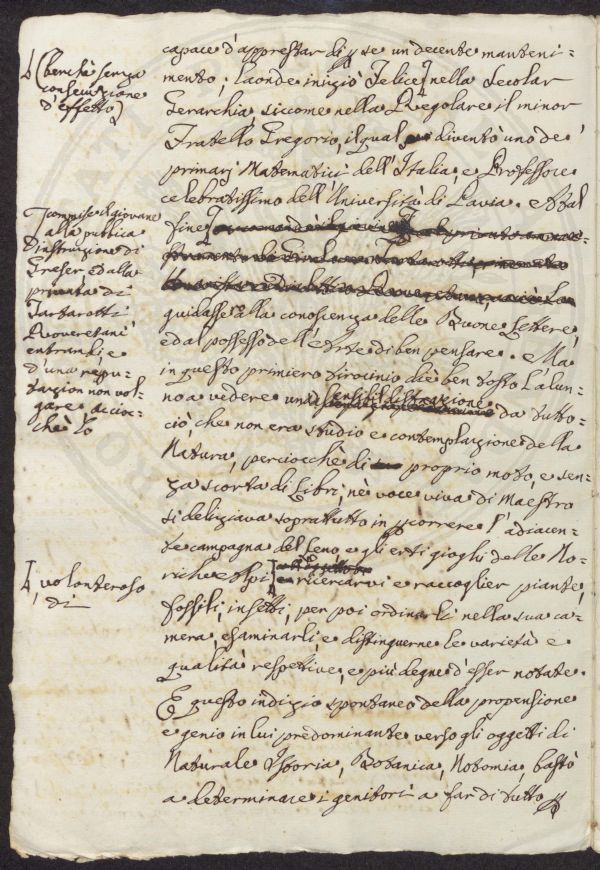 capace d'apprestar di p se un decente manteni=
mento; laonde iniziò Felice nella Secolar
Gerarchia siccome nella Regolare il minor
Fratello Gregorio, il qual diventò uno de'
primarj Matematici dell'Italia, e Professore
celebratissimo dell'Università di Pavia. A tal
fine
guidasse alla conoscenza delle Buone Lettere,
ed al possesso dell'Arte di ben pensare. Ma
in questo primiero tirocinio diè ben tosto l'alun=
no a vedere una sensibil distrazione da tutto=
ciò, che non era studio e contemplazione della
Natura, perciocchè di proprio moto, e sen=
za scorta di Libri, nè voce viva di Maestro
si deliziava soprattutto in iscorrere l'adiacen=
te campagna del Leno, e gli erti gioghi delle No=
riche Alpi, ricercarvi e raccoglier piante,
fossili, insetti, per poi ordinarli nella sua ca=
mera, esaminarli, e distinguerne le varietà e
qualità respettive, e più degne d'esser notate.
E questo indizio spontaneo della propensione
e genio in lui predominante verso gli oggetti di
Naturale Istoria, Botanica, Notomia, bastò
a determinare i genitori a far di tutto p
(benchè senza
consecuzione
d'effetto)
commise il giovane
alla pubblica
Instruzione di
Graser, ed alla
privata di
Tartarotti
Roveretani
entrambi e
d'una repu=
tazion non vol=
gare, accioc=
chè lo
, volonteroso
di